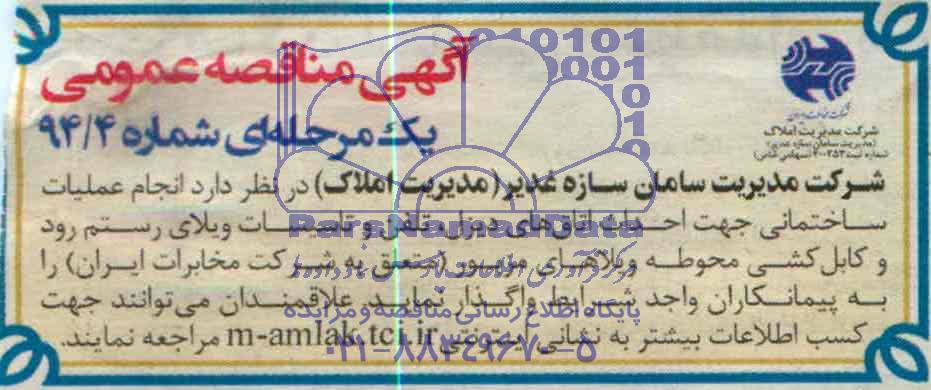 آگهی مناقصه عمومی
یک مرحله‌ای شماره ۹۴/۴
شرکت مدیریت املاک
(مدیریت سامان سازه غدیر)
شماره ثبت ۲۰۰۲۵۳ (سهامی خاص)
شرکت مدیریت سامان سازه غدیر (مدیریت املاک) در نظر دارد انجام عملیات
ساختمانی جهت احداث اتاق‌های دیزل، تلفن و تاسیسات ویلای رستم رود
و کابل کشی محوطه ویلاهای مزبور (متعلق به شرکت مخابرات ایران) را
به پیمانکاران واجد شرایط واگذار نماید، علاقمندان می‌توانند جهت
کسب اطلاعات بیشتر به نشانی اینترنتی m-amlak.tci.ir مراجعه نمایند.
ParsNamadData
پایگاه اطلاع رسانی مناقصه و مزایده
۰۲۱-۸۸۳۴۹۶۷۰-۵